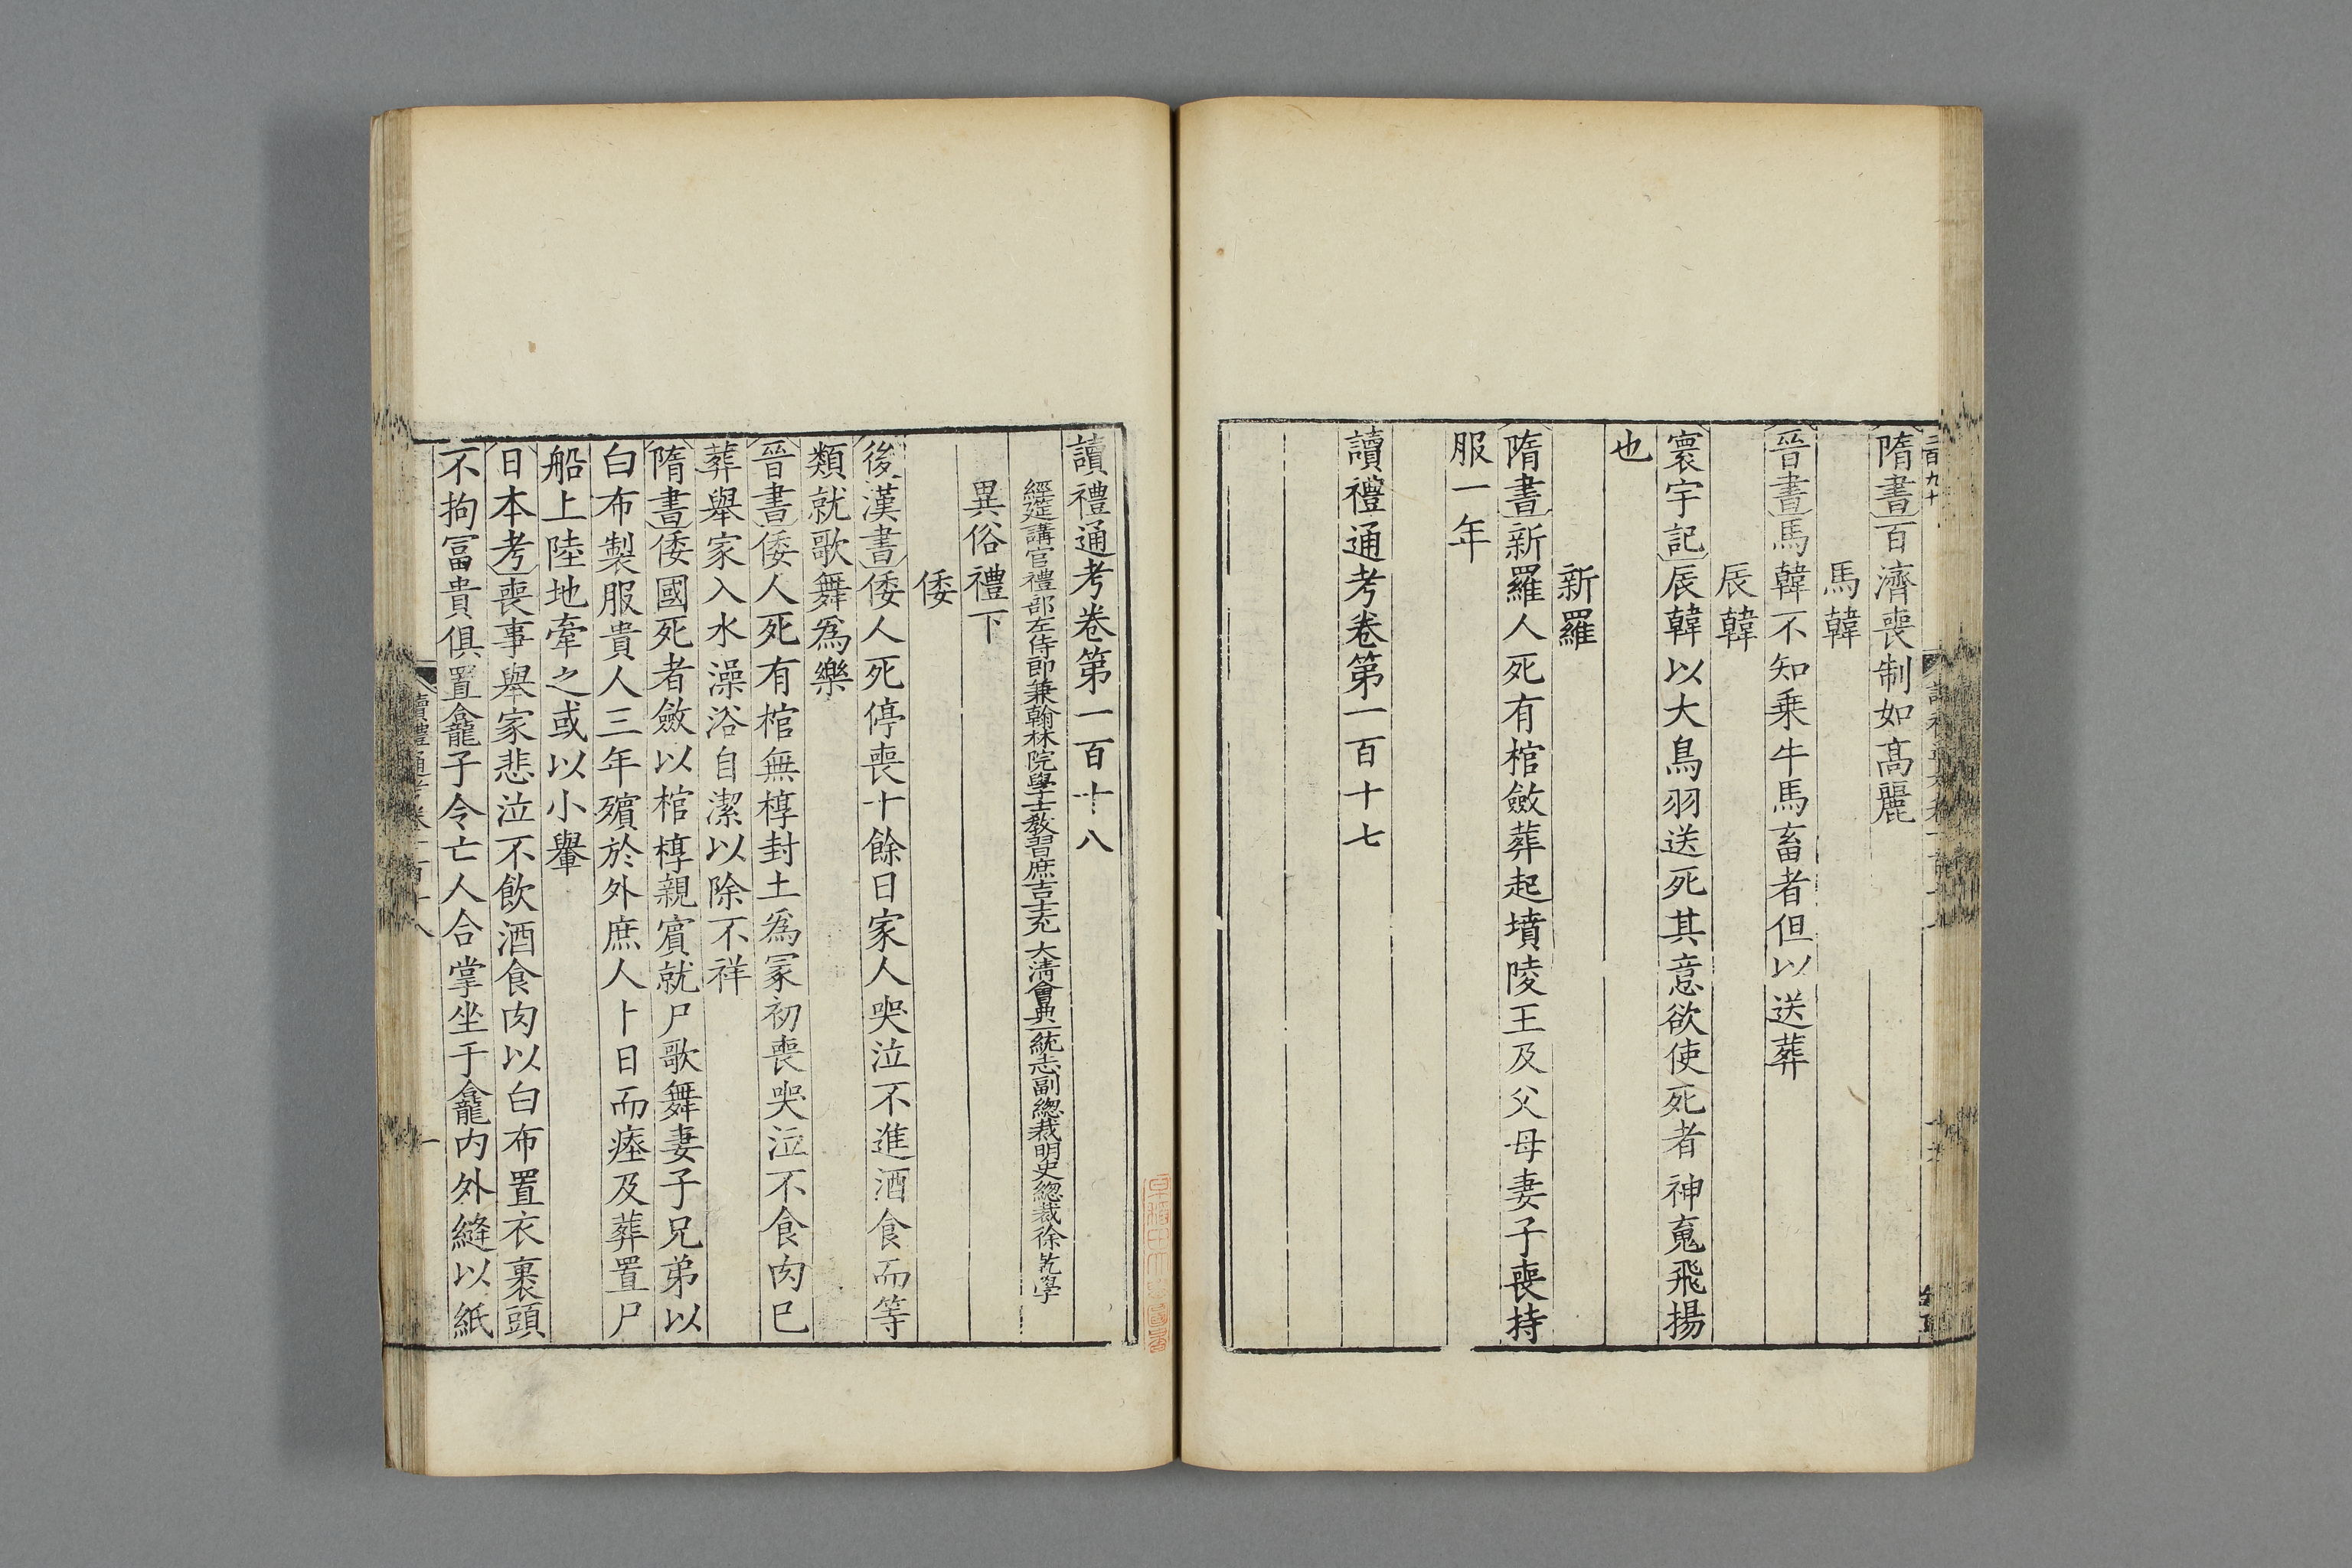 二百九十
隋書百濟喪制如高麗
馬韓
晉書馬韓不知乗牛馬畜者但以送葬
辰韓
寰宇記辰韓以大鳥羽送死其意欲使死者神䰟飛揚
也
新羅
隋書新羅人死有棺斂葬起墳陵王及父母妻子喪持
服一年
讀禮通考卷第一百十七
讀禮通考卷第一百十八
經筵講官禮部左侍郎兼翰林院學士教習庶吉士充 大清會典一統志副總裁明史總裁徐乾學
異俗禮下
倭
後漢書倭人死停喪十餘日家人哭泣不進酒食而等
類就歌舞爲樂
晉書倭人死有棺無椁封土爲冢初喪哭泣不食肉已
葬舉家入水澡浴自潔以除不祥
隋書倭國死者斂以棺椁親賓就尸歌舞妻子兄弟以
白布製服貴人三年殯於外庶人卜日而瘞及葬置尸
船上陸地牽之或以小轝
日本考喪事舉家悲泣不飲酒食肉以白布置衣裹頭
不拘冨貴俱置龕子令亡人合掌坐于龕内外縫以紙
讀禮通考卷一百十八
一